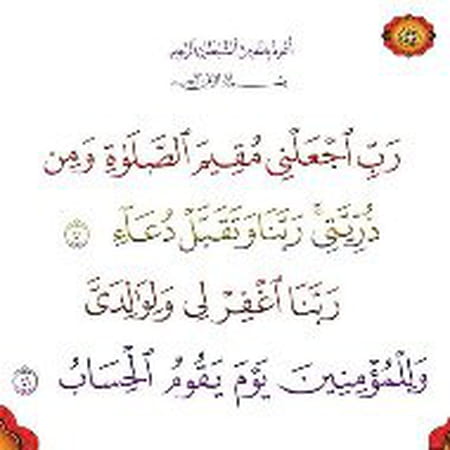 أعوذ بالله من الشيطان الرجيم
بسم الله الرحمن الرحيم
رَبِّ ٱجْعَلْنِى مُقِيمَ ٱلصَّلَوٰةِ وَمِن
ذُرِّيَّتِى ۚ رَبَّنَا وَتَقَبَّلْ دُعَآءِ
رَبَّنَا ٱغْفِرْ لِى وَلِوَٰلِدَىَّ
وَلِلْمُؤْمِنِينَ يَوْمَ يَقُومُ ٱلْحِسَابُ